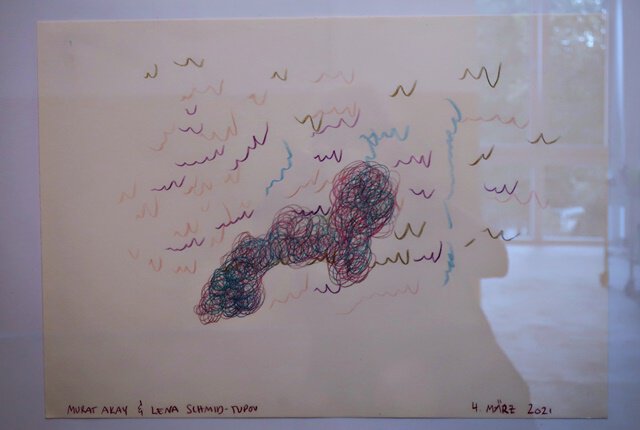 MURAT AKAY & LENA SCHMID-TUPOU
4 MÄRZ 2021